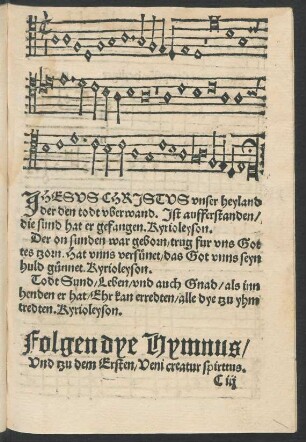 JHESVS CHRISTVS vnser heyland
der den todt vberwand. Ist aufferstanden/
die sund hat er gefangen. Kyrioleyson.
Der on sunden war geborn/trug fur vns Got
tes tzorn. Hat vnns versünet/das Got vnns seyn
huld günnet. Kyrioleyson.
Todt Sund/Leben/vnd auch Gnad/als inn
henden er hat/Ehr kan erredten/alle dye tzu yhm
tredten. Kyrioleyson.
Folgen dye Hymnus/
Vnd tzu dem Ersten/Veni creatur spirttus.
C iij